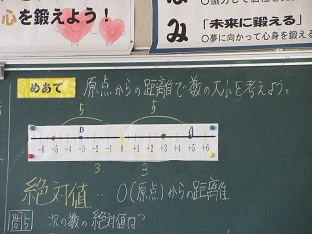 心を鍛えよう！
み
「未来に鍛える」
○夢に向かって心身を鍛える
めあて
原点からの距離で数の大小を考えよう。
5
5
B
A
-6 -5 -4 -3 -2 -1 0 +1 +2 +3 +4 +5 +6
3
3
絶対値… 0(原点)からの距離
問5 次の数の絶対値は？